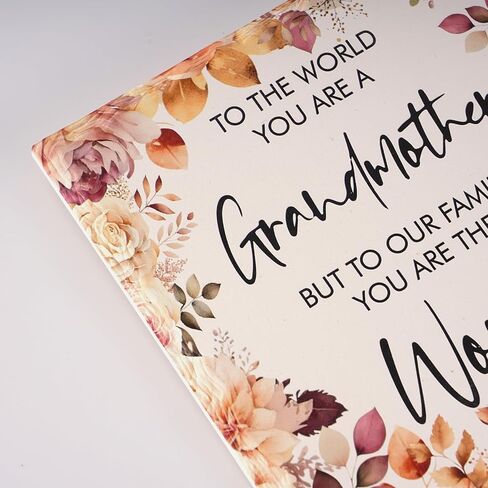 TO THE WORLD
YOU ARE A
Grandmother
BUT TO OUR FAMI
YOU ARE THE
Wo